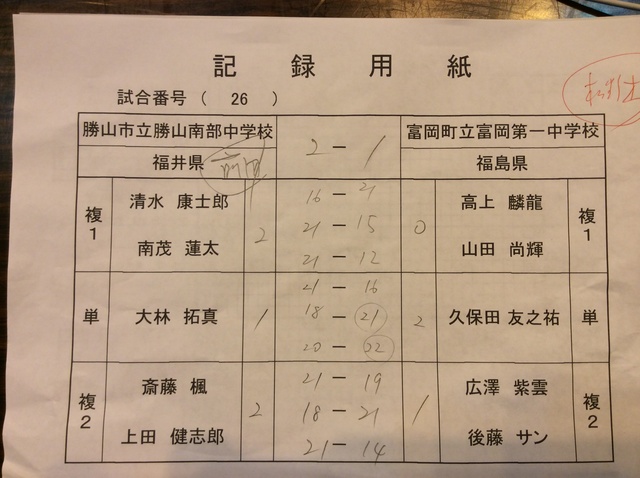 記 録 用 紙
試合番号 ( 26 )
勝山市立勝山南部中学校 2 - 1 富岡町立富岡第一中学校
福井県 福島県
複1 清水 康士郎 南茂 蓮太 2
16 - 21
21 - 15
21 - 12
0 高上 麟龍 山田 尚輝 複1
単 大林 拓真 1
21 - 16
18 - 21
20 - 22
2 久保田 友之祐 単
複2 斎藤 楓 上田 健志郎 2
21 - 19
18 - 21
21 - 14
1 広澤 紫雲 後藤 サン 複2